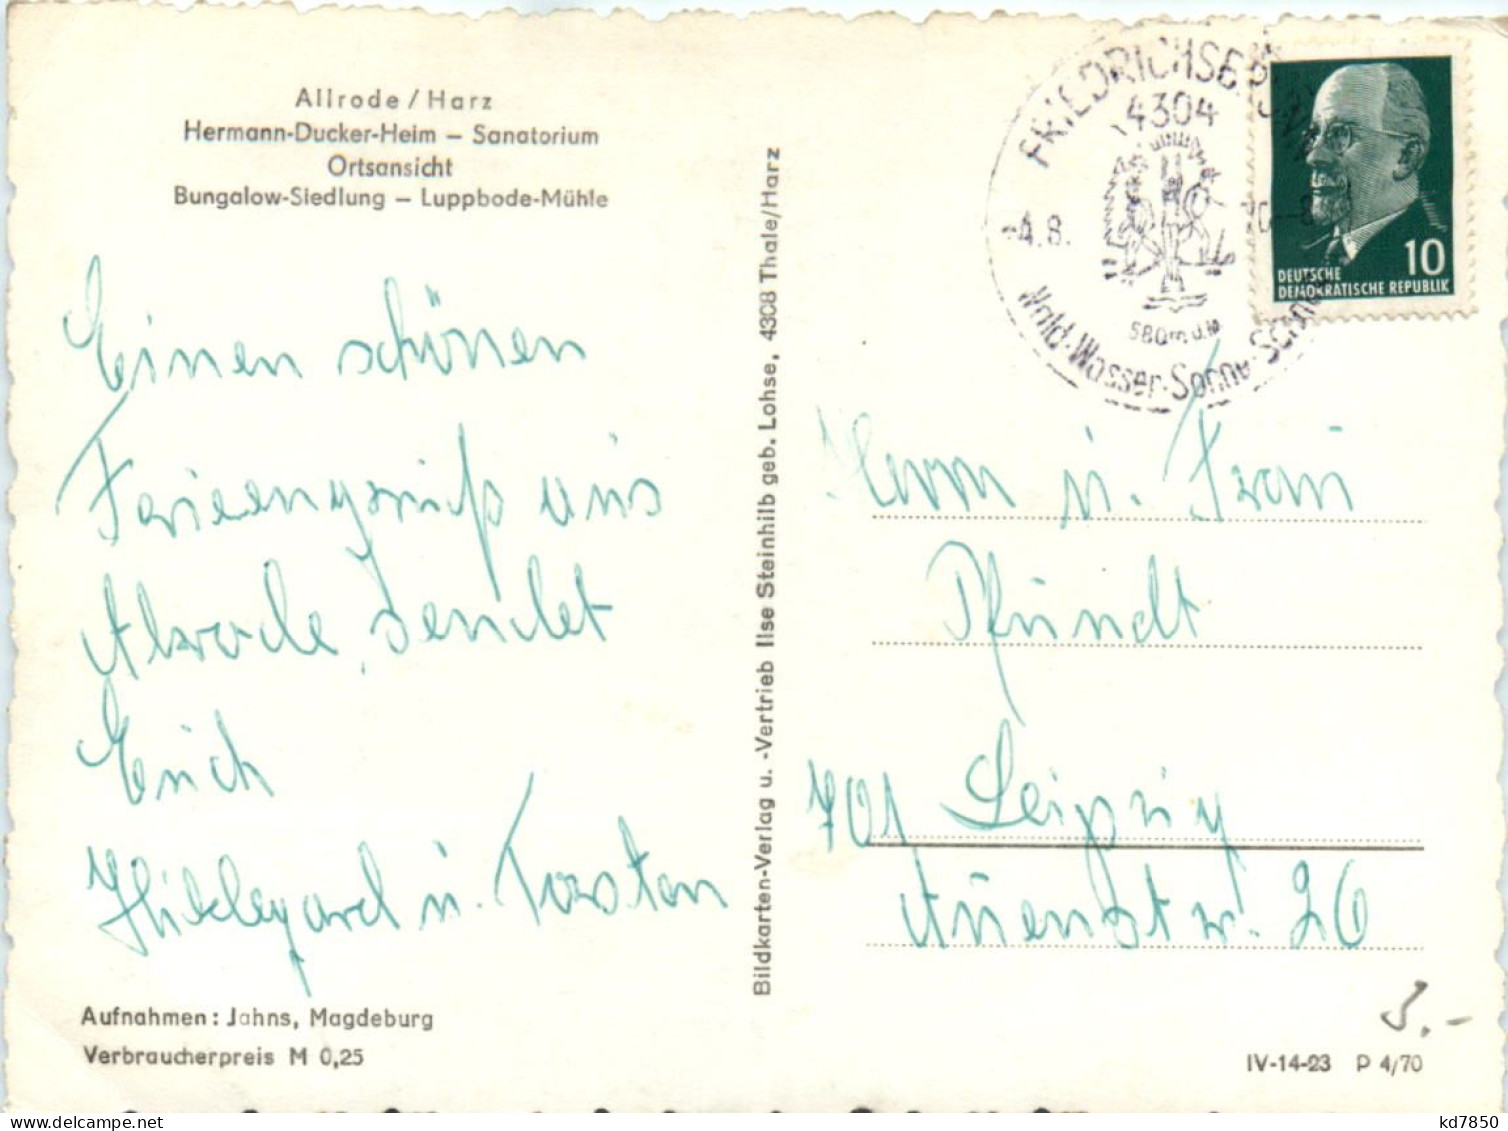 Allrode / Harz
Hermann-Ducker-Heim – Sanatorium
Ortsansicht
Bungalow-Siedlung – Luppbode-Mühle
Einen schönen
Feriengruß aus
Alrode, sendet
Erich
Hildegard u. Torsten
Aufnahmen: Jahns, Magdeburg
Verbraucherpreis M 0,25
Bildkarten-Verlag u. -Vertrieb Ilse Steinhilb geb. Lohse, 4308 Thale/Harz
4304
-4.8.
580m ü.M
Wald-Wasser-Sonne-
10
DEUTSCHE
DEMOKRATISCHE REPUBLIK
Herrn u. Frau
Pfundt
701 Leipzig
Auenstr. 26
3.-
IV-14-23 P 4/70
kd7850